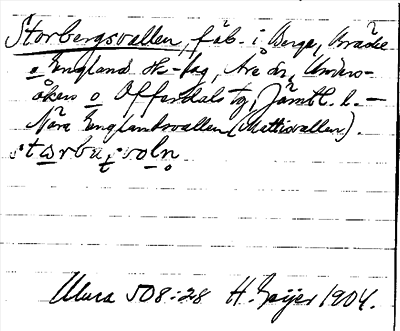 Storbergsvallen, fäb. i Berge, Bräcke
o England sk-lag, Åre sn, Unders-
åkers o Offerdals tg, Jämtl. l. —
Nära Englandsvallen (Mattisvallen).
Uluca 508:28 H. Geijer 1904.